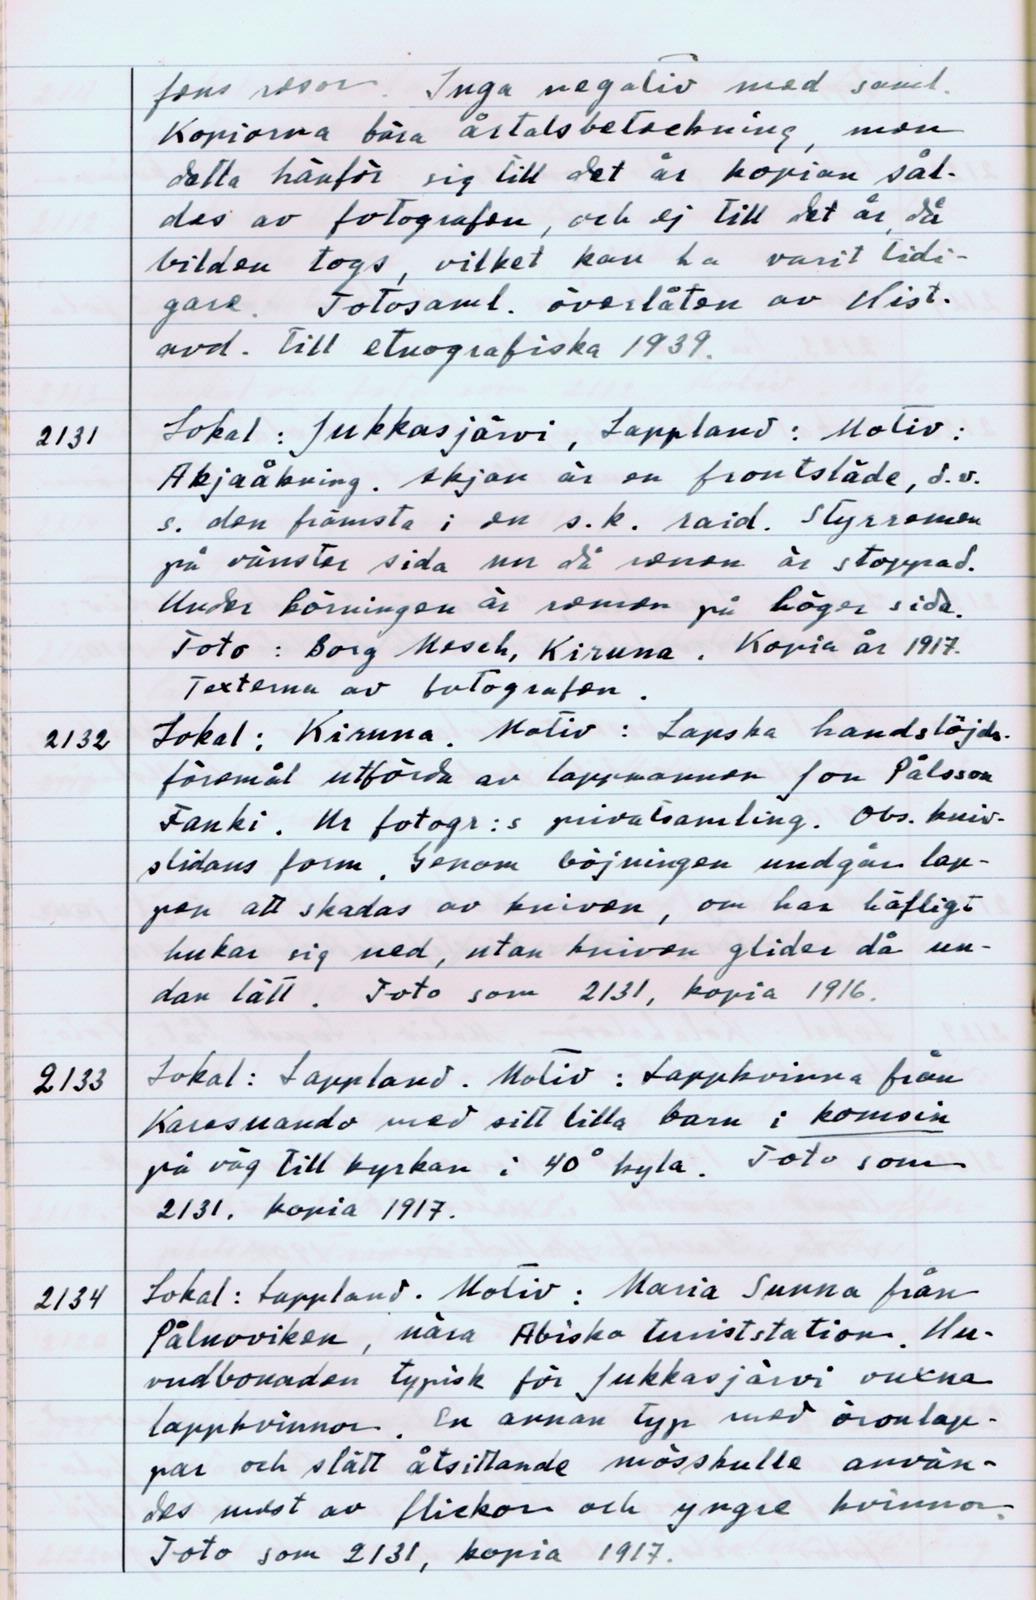 fens resor. Inga negativ med saml.
Kopiorna bära årtalsbeteckning, men
detta hänför sig till det år kopian sål-
des av fotografen, och ej till det år, då
bilden togs, vilket kan ha varit tidi-
gare. Fotosaml. överlåten av Hist.
avd. till etnografiska 1939.
2131 Lokal: Jukkasjärvi, Lappland: Motiv:
Akjaåkning. Akjan är en frontsläde, d.v.
s. den främsta i en s.k. raid. Styrremen
på vänster sida nu då renen är stoppad.
Under körningen är remmen på höger sida.
Foto: Borg Mesch, Kiruna. Kopia år 1917.
Texterna av fotografen.
2132 Lokal: Kiruna. Motiv: Lapska handslöjds-
föremål utförda av lappmannen Jon Pålsson
Fanki. Ur fotogr:s privatsamling. Obs. kniv-
slidans form. Genom böjningen undgår lap-
pen att skadas av kniven, om han häftigt
hukar sig ned, utan kniven glider då un-
dan lätt. Foto som 2131, kopia 1916.
2133 Lokal: Lappland. Motiv: Lappkvinna från
Karesuando med sitt lilla barn i komsin
på väg till kyrkan i 40° kyla. Foto som
2131. kopia 1917.
2134 Lokal: Lappland. Motiv: Maria Sunna från
Pålnoviken, nära Abisko turiststation. Hu-
vudbonaden typisk för Jukkasjärvi vuxna
lappkvinnor. En annan typ med öronlap-
par och slätt åtsittande mösskulle använ-
des mest av flickor och yngre kvinnor.
Foto som 2131, kopia 1917.